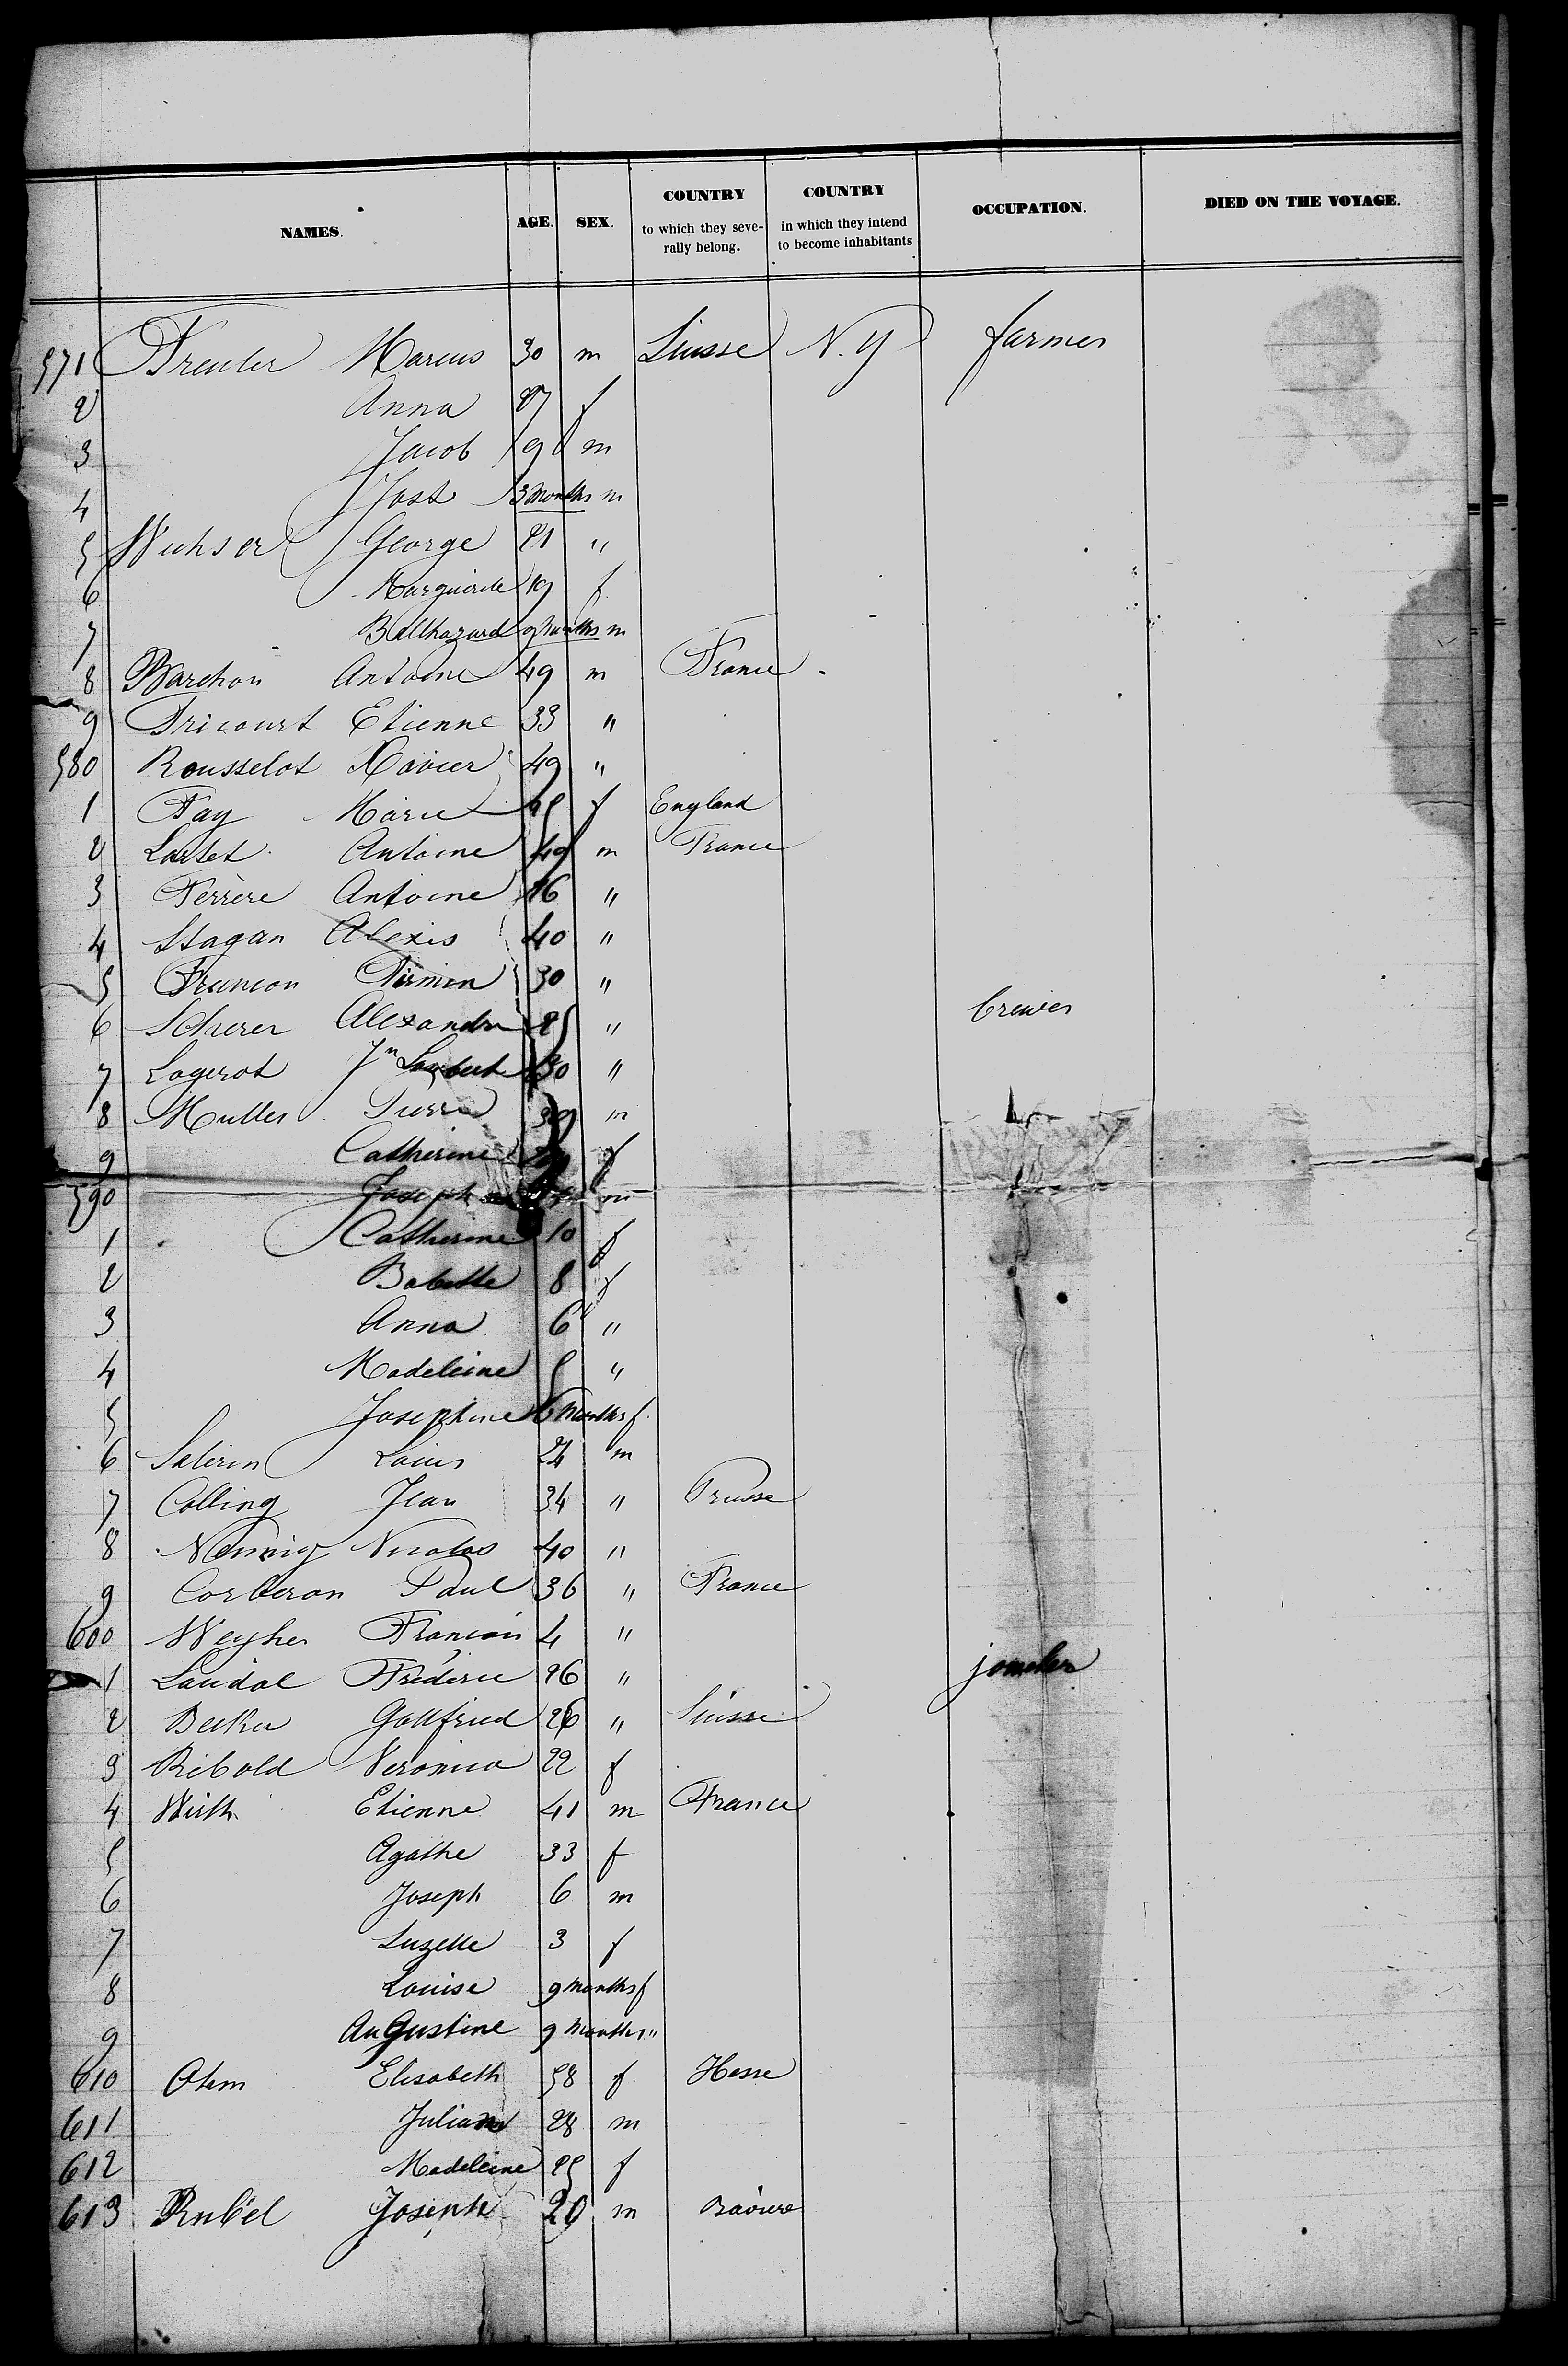 NAMES. AGE. SEX. COUNTRY to which they severally belong. COUNTRY in which they intend to become inhabitants OCCUPATION. DIED ON THE VOYAGE.
571 Freuler Marcus 30 m Suisse N.Y farmer
2 Anna 27 f
3 Jacob 9 m
4 Jost 3 Months m
5 Wichser George 21 "
6 Marguerite 19 f
7 Balthazard 9 Months m
8 Barchon Antoine 49 m France
9 Tricourt Etienne 33 "
580 Rousselot Xavier 49 "
1 Fay Marie 25 f England
2 Lartet Antoine 49 m France
3 Ferrère Antoine 16 "
4 Stagan Alexis 40 "
5 Francon Firmin 30 "
6 Scherer Alexandre 25 " brewer
7 Logerot Jn Lambert 30 "
8 Muller Pierre 39 m
9 Catherine f
590 Joseph m
1 Catherine 10 f
2 Babette 8 f
3 Anna 6 "
4 Madeleine 5 "
5 Josephine 6 Months f
6 Salerin Louis 24 m
7 Colling Jean 34 " Prusse
8 Nennig Nicolas 40 "
9 Corberon Paul 36 " France
600 Weyher François 4 "
1 Laudal Frederic 26 "
2 Becker Gottfried 26 " Suisse
3 Ribold Veronica 22 f
4 Wirth Etienne 41 m France
5 Agathe 33 f
6 Joseph 6 m
7 Suzette 3 f
8 Louise 9 Months f
9 Augustine 9 Months "
610 Ohm Elisabeth 58 f Hesse
611 Julian 28 m
612 Madeleine 25 f
613 Rubel Joseph 20 m Bavière